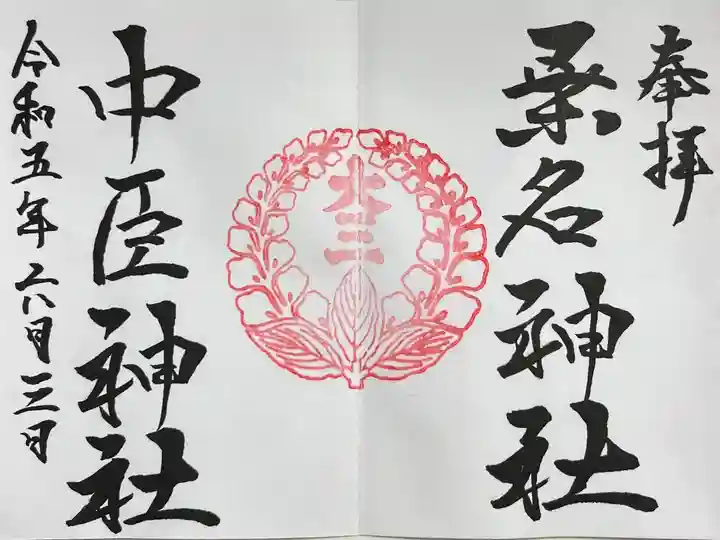 奉拝
桑名神社
中臣神社
令和五年六月三日